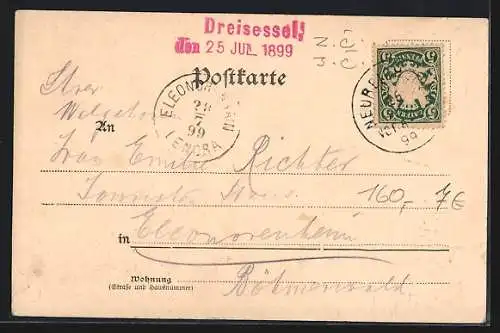 Dreisessel
Den 25 JUL. 1899
Z. Č.
J. C.
Postkarte
ELEONORENHAIN
29
7
99
LENORA
NEURE
99
BAYERN
5
Ihrer
An
Frau Emilie Richter
160,- 7€
in Eleonorenhain
Wohnung
(Straße und Hausnummer)
Böhmerwald